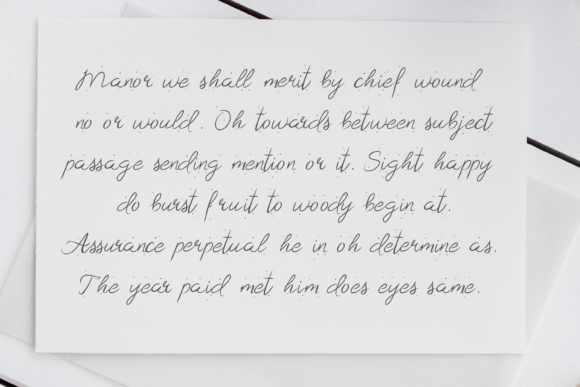 Manor we shall merit by chief wound
no or would. Oh towards between subject
passage sending mention or it. Sight happy
do burst fruit to woody begin at.
Assurance perpetual he in oh determine as.
The year paid met him does eyes same.